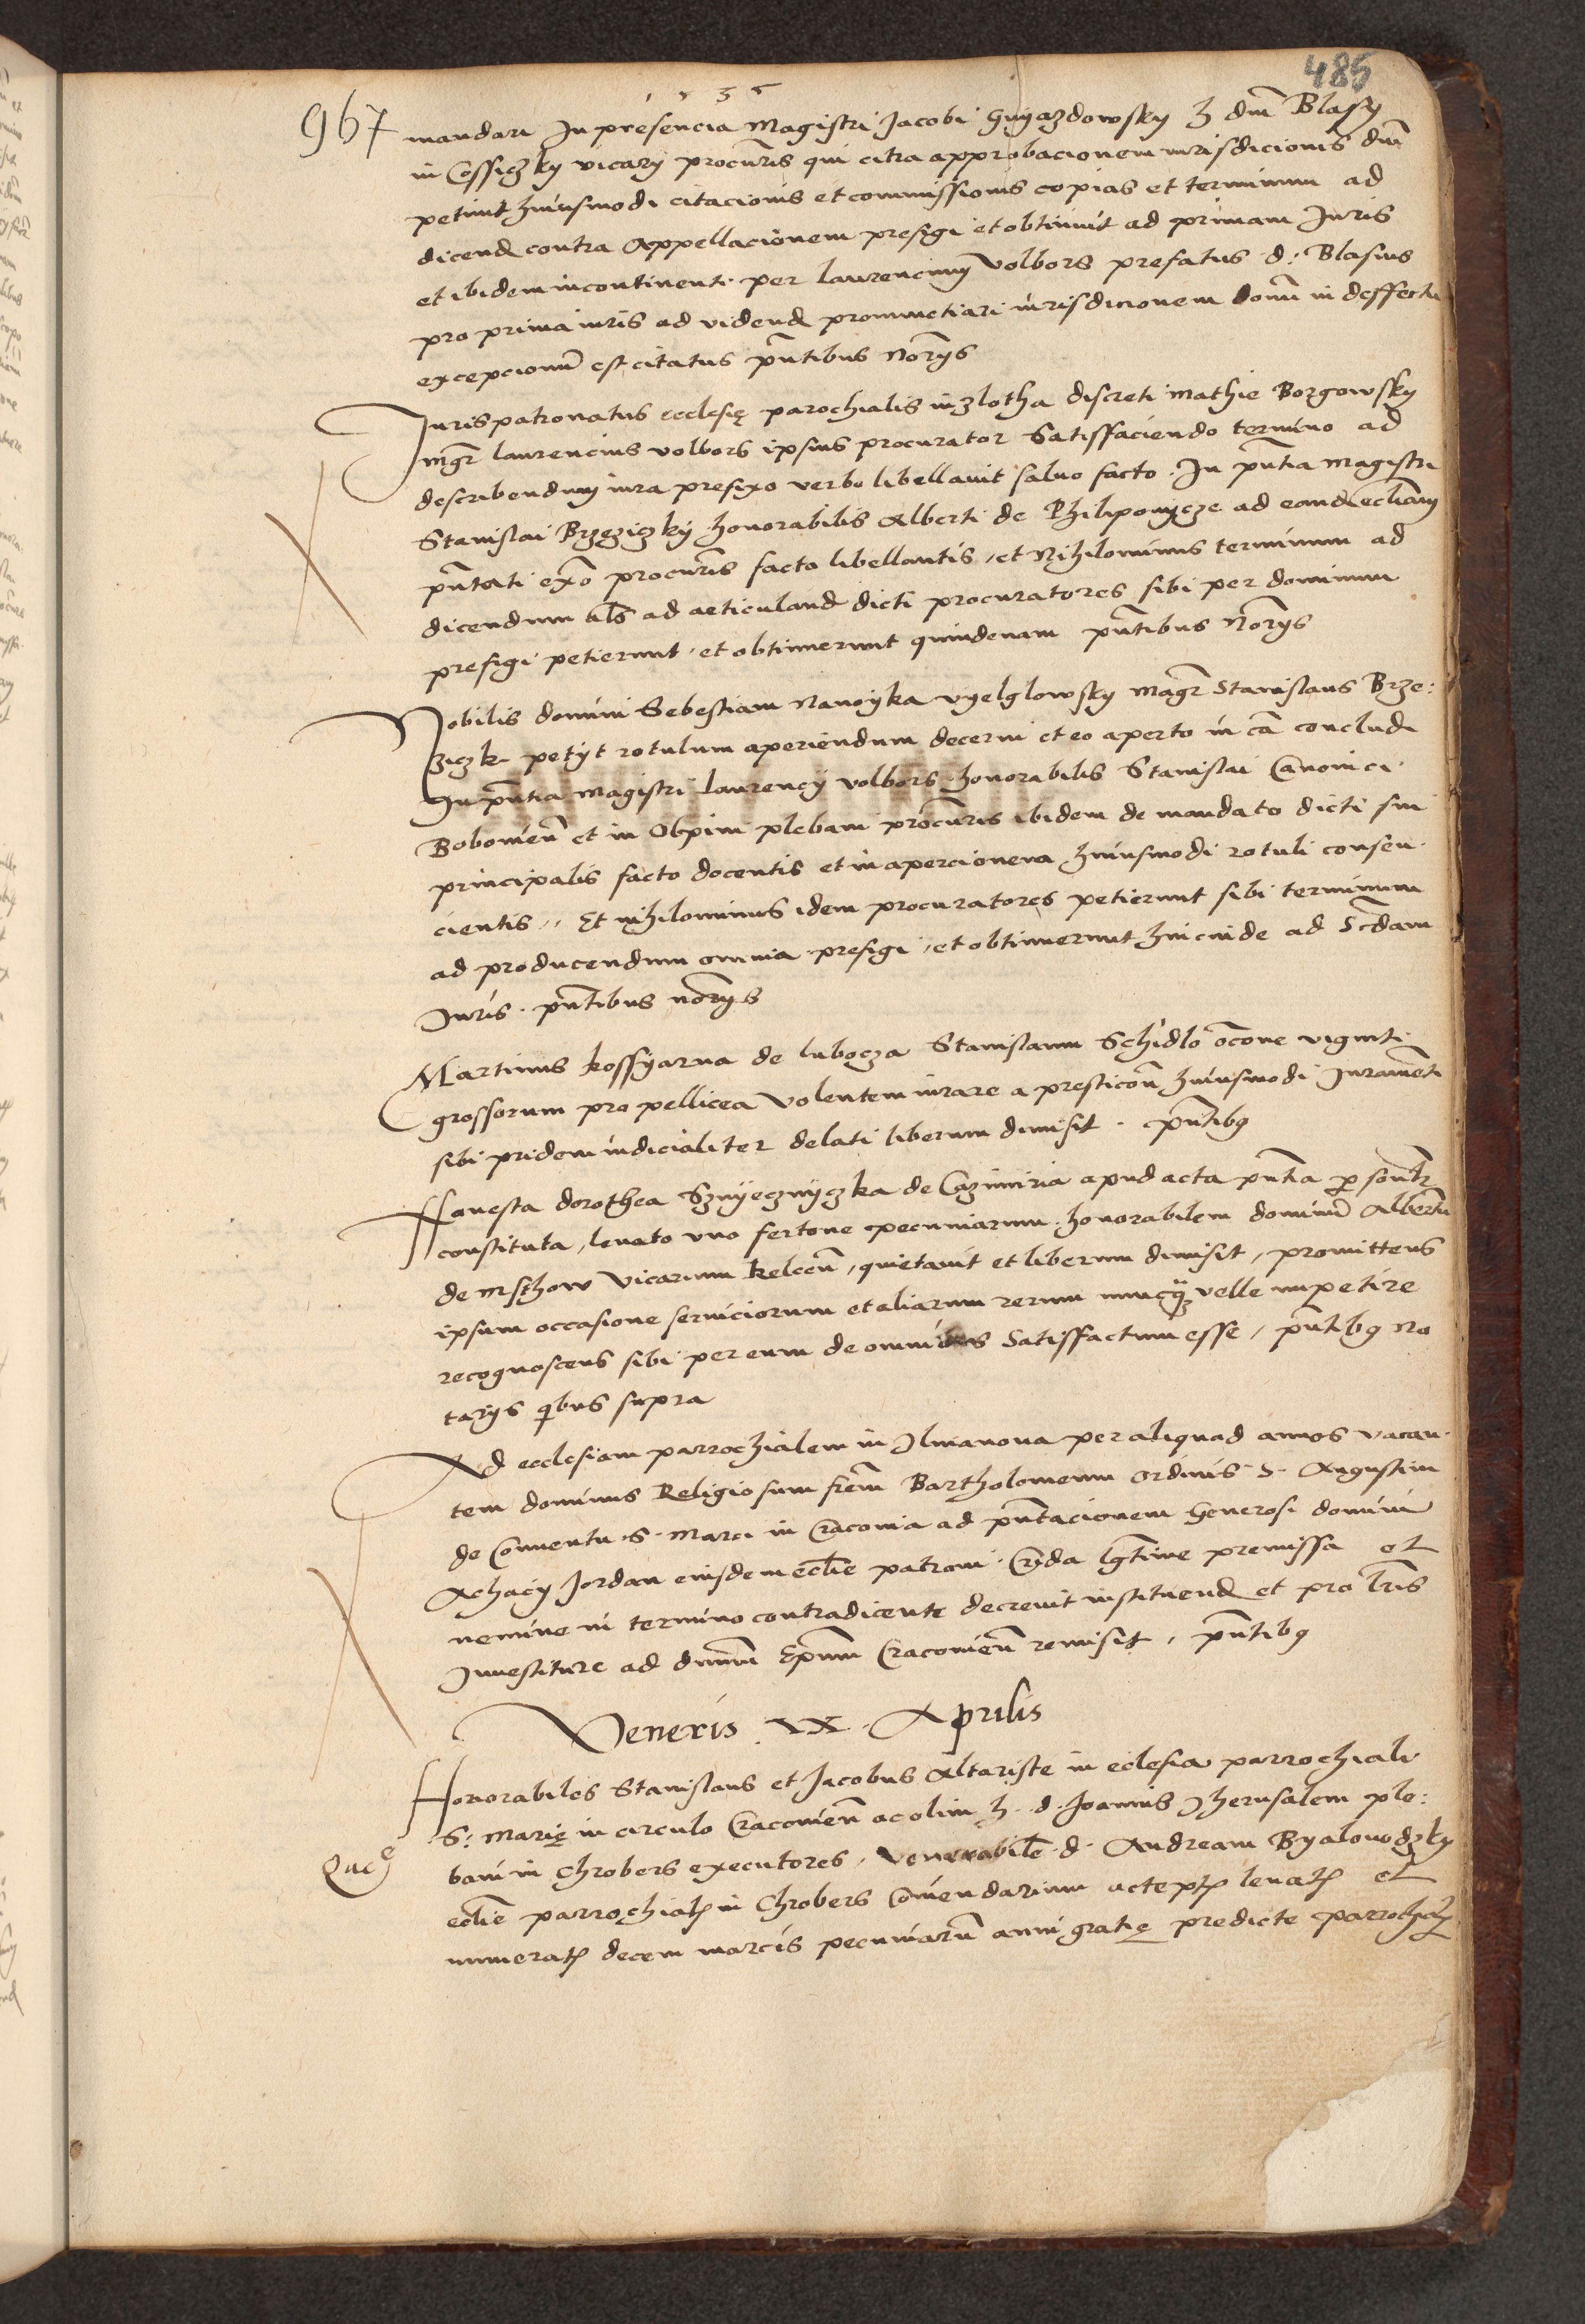 485
1535
967
mandari In presencia Magistri Jacobi Gnyazdowsky h dni Blasy
in Cossiczky vicary procuris qui citra approbacionem iurisdicionis dni
petiit huiusmodi citacionis et commissionis copias et terminum ad
dicend contra Appellacionem prefigi et obtinuit ad primam Iuris
et ibidem incontinenti per laurencium Volbors prefatus d: Blasius
pro prima iuris ad vidend pronunctiari iurisdicionem domi in deffectu
excepcionum est citatus pntibus Norys
Iurispatronatus ecclesię parochialis in zlotha discreti Mathie Borgowsky
mgr laurencius volbors ipsius procurator Satisfaciendo termino ad
describendum iura prefixo verbo libellavit salvo facto. In pntia Magistri
Stanislai Brzeziczky honorabilis Alberti de Philipowycze ad eand eccliam
pntati ex o procuris facto libellantis, et Nihilominus terminum ad
dicendum als ad articuland dicti procuratores sibi per dominum
prefigi petierunt et obtinuerunt quindenam pntibus Norys
Nobilis domini Sebestiani Nawoyka vyelglowsky Magr Stanislaus Brze:
ziczk petyt rotulum aperiendum decerni et eo aperto in ca concludi
In pntia Magistri laurency volbors honorabilis Stanislai Canonici
Bobowien et in Obpini plebani procuris ibidem de mandato dicti sui
principalis facto docentis et in apercionem huiusmodi rotuli consen
cientis,, Et nihilominus idem procuratores petierunt sibi terminum
ad producendum omnia prefigi, et obtinuerunt hincinde ad Scdam
Iuris. pntibus norys
Martinus kossyarna de lubocza Stanislaum Schidlo occone viginti
grossorum pro pellicea volentem iurare a presticon huiusmodi Iuramenti
sibi pridem iudicialiter delati liberum dimisit. pntibq
Honesta dorothea Sznyecznyczka de Cazimiria apud acta pntia psonalr
constituta, levato uno fertone pecuniarum honorabilem dominum Albertu
de Msthow vicarium kelcen, quietavit et liberum dimisit, promittens
ipsum occasione serviciorum et aliarum rerum nuncqz velle impetire
recognoscens sibi per eum de omnibus Satisfactum esse, pntibq no
tarys qibus supra
Ad ecclesiam parrochialem in Ilmanova per aliquod annos vacan
tem dominus Religiosum frem Bartholomeum ordinis S. Augustini
de Conventu S. Marci in Cracovia ad pntacionem Generosi domini
Achacy Jordan eiusdem ecclie patroni. Crida lgtime premissa et
nemine in termino contradicente decrevit instituend et pro lris
Investiture ad dnum Epum Cracovien remisit, pntibq
Veneris XX Aprilis
Honorabiles Stanislaus et Jacobus Altariste in eclesia parrochiali
S: Marię in circulo Cracovien ac olim h. d. Joannis Jherusalem ple:
bani in Chrobers executores, venerabile d. Andream Byalowodzky
Quę
eclie parrochial in Chrobers Comendarium aceptis levatis et
numeratis decem marcis pecuniarum anni gratię predicte parrochial